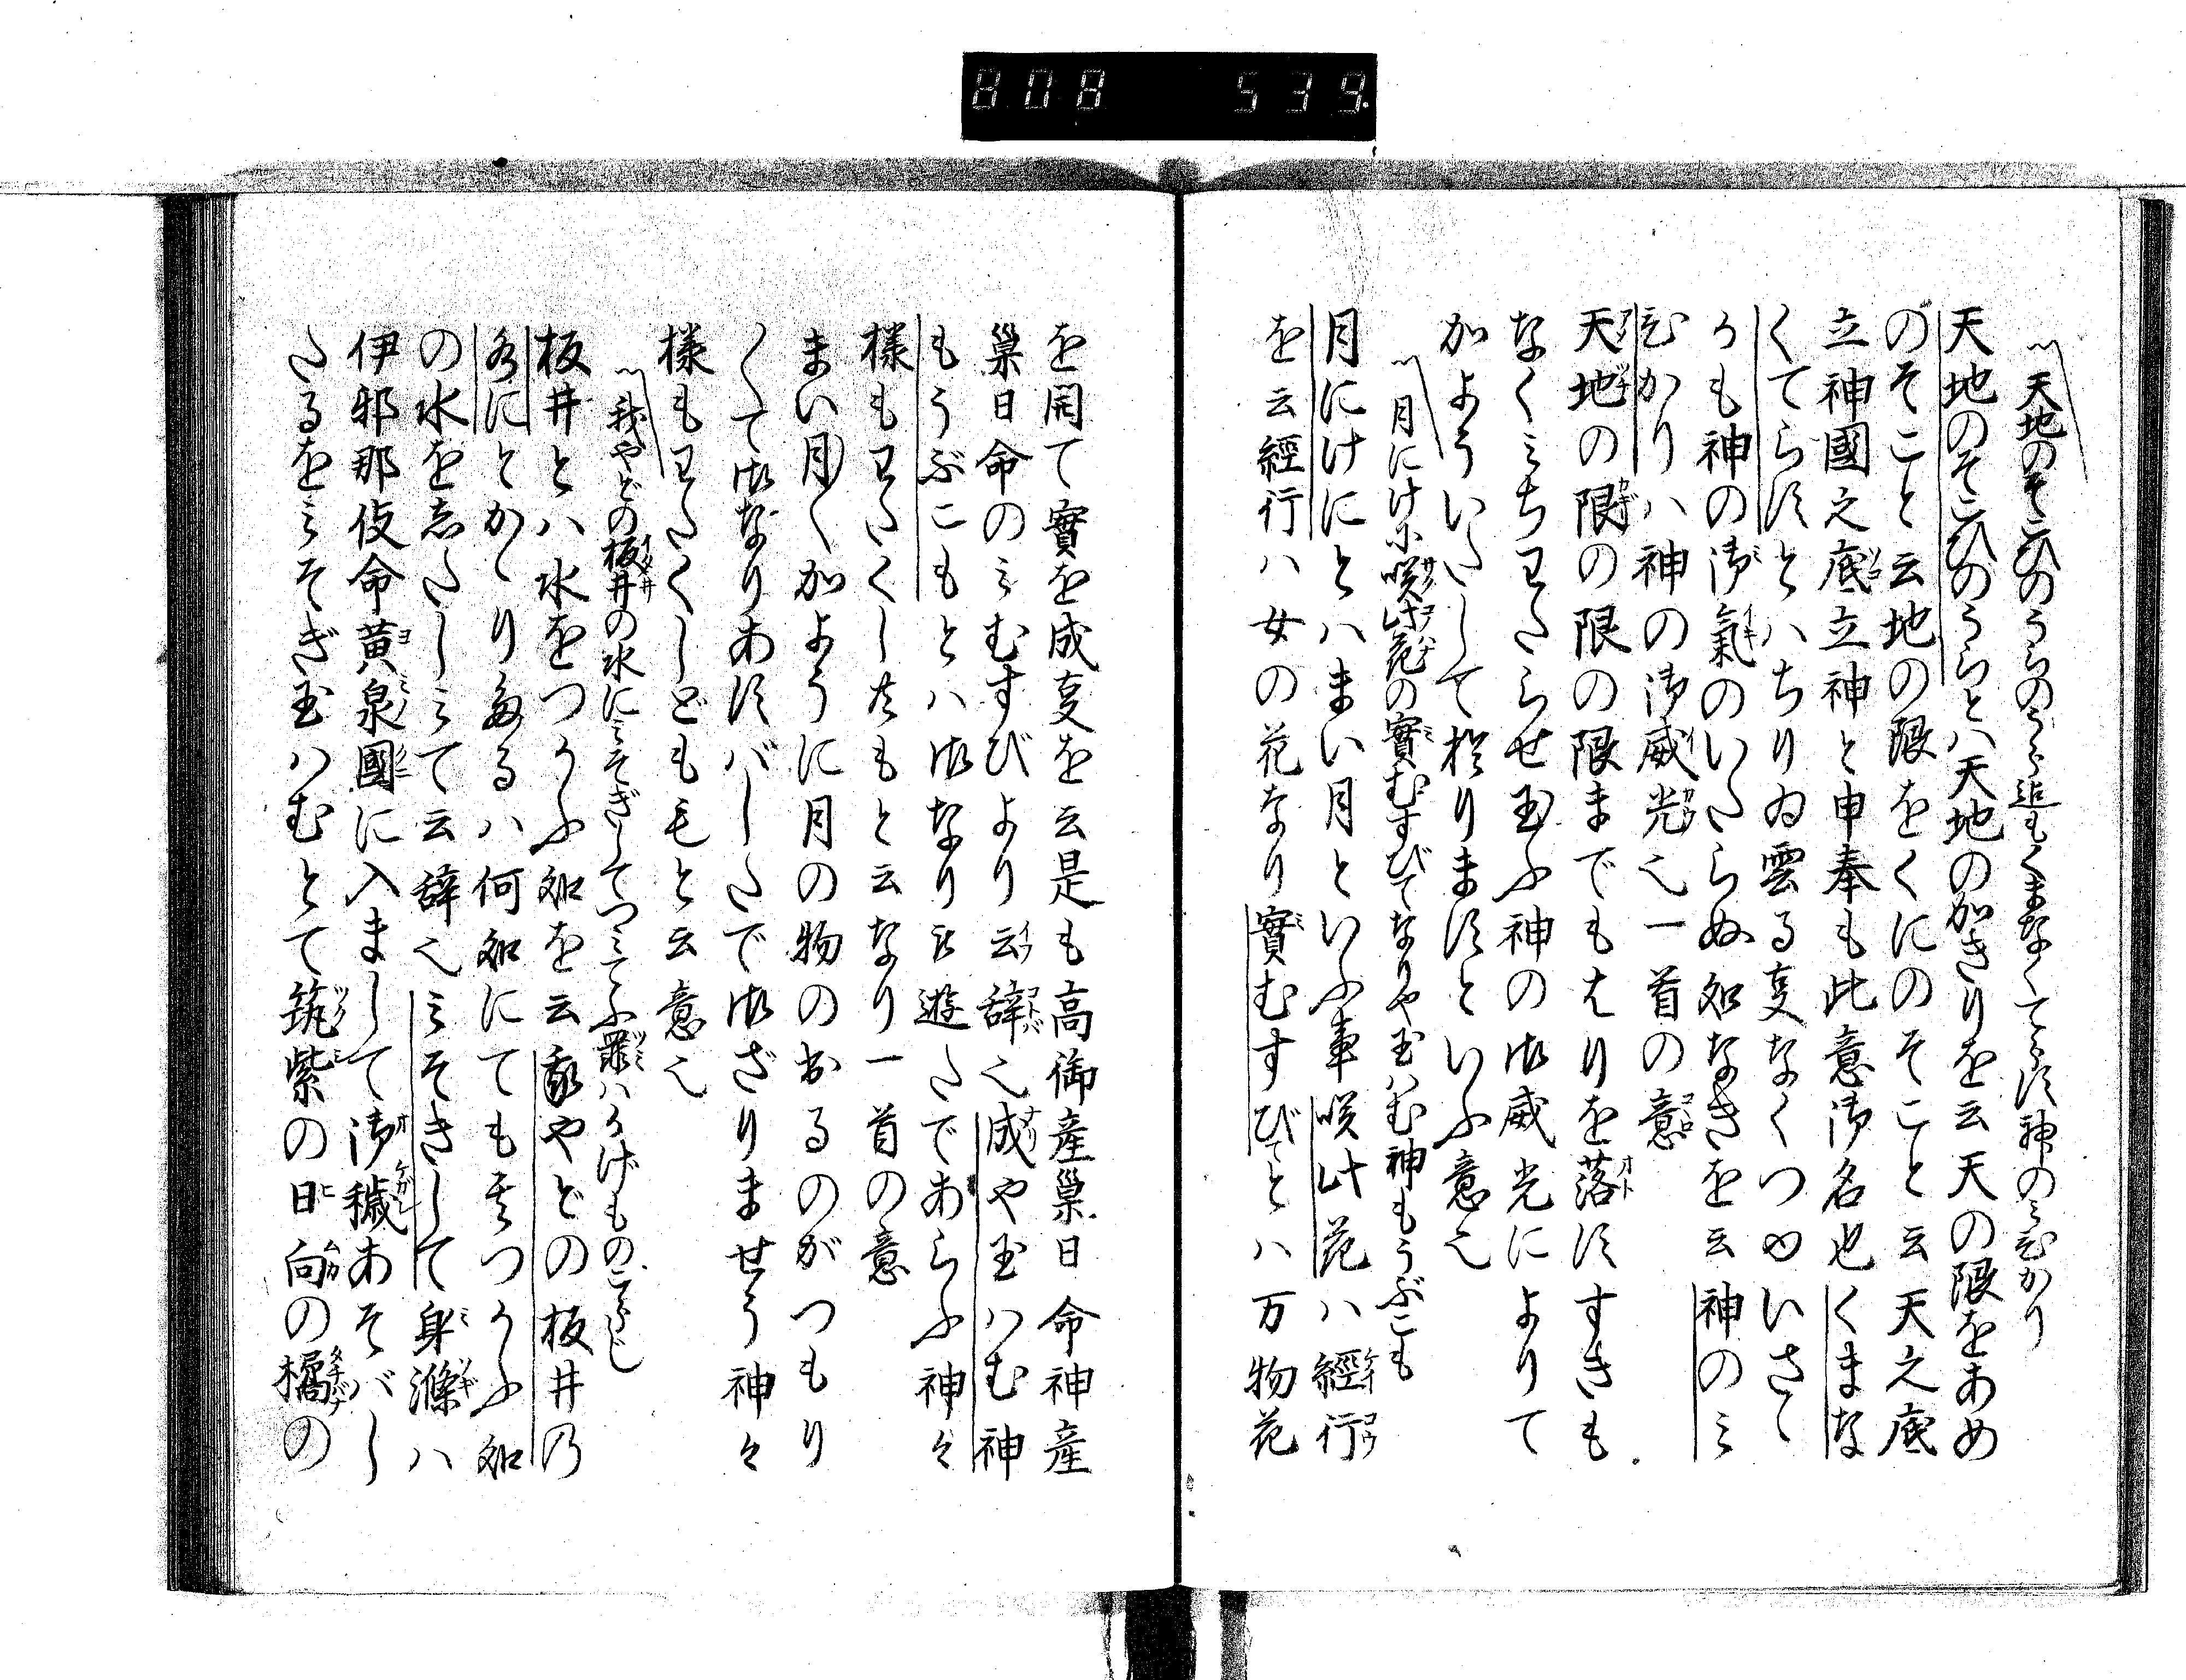 808 539
〽天地のそこひのうらのうら迄もくまなくてらす神のみひかり
天地のそこひのうらとハ天地の加きりを云天の限をあめ
のそこと云地の限をくにのそこと云天之底
立神國之底立神と申奉も此意御名也くまな
くてらすとハちりゐ雲る事なくつゆいさゝ
かも神の御氣のいたらぬ処なきを云神のみ
ひかりハ神の御威光也一首の意
天地の限の限の限までももはりを落すすきも
なくみちわたらせ玉ふ神の御威光によりて
かよういたして居りますといふ意也
〽月にけに咲此花の實むすびてなりや玉はむ神もうぶこも
月にけにとハまい月といふ事咲此花ハ經行
を云經行ハ女の花なり實むすびてとハ万物花
を開て實を成事を云是も高御産巣日命神産
巣日命のみむすびより云辞也成や玉はむ神
もうぶこもとハ御なり被遊たであらふ神々
様もわたくし共もと云なり一首の意
まい月〱加ように月の物のおるのがつもり
〱て御なりあすばしたで御ざりませう神々
様もわたくしどももと云意也
〽我やどの板井の水にみそぎしてつみてふ罪ハかげものこらじ
板井とハ水をつかふ処を云我やどの板井乃
水にとかゝり有るハ何処にても其つかふ処
の水をさたしみて云辞也みそきして身滌ハ
伊邪那伎命黄泉國に入まして御穢あそバし
たるをみそぎ玉ハむとて筑紫の日向の橘の